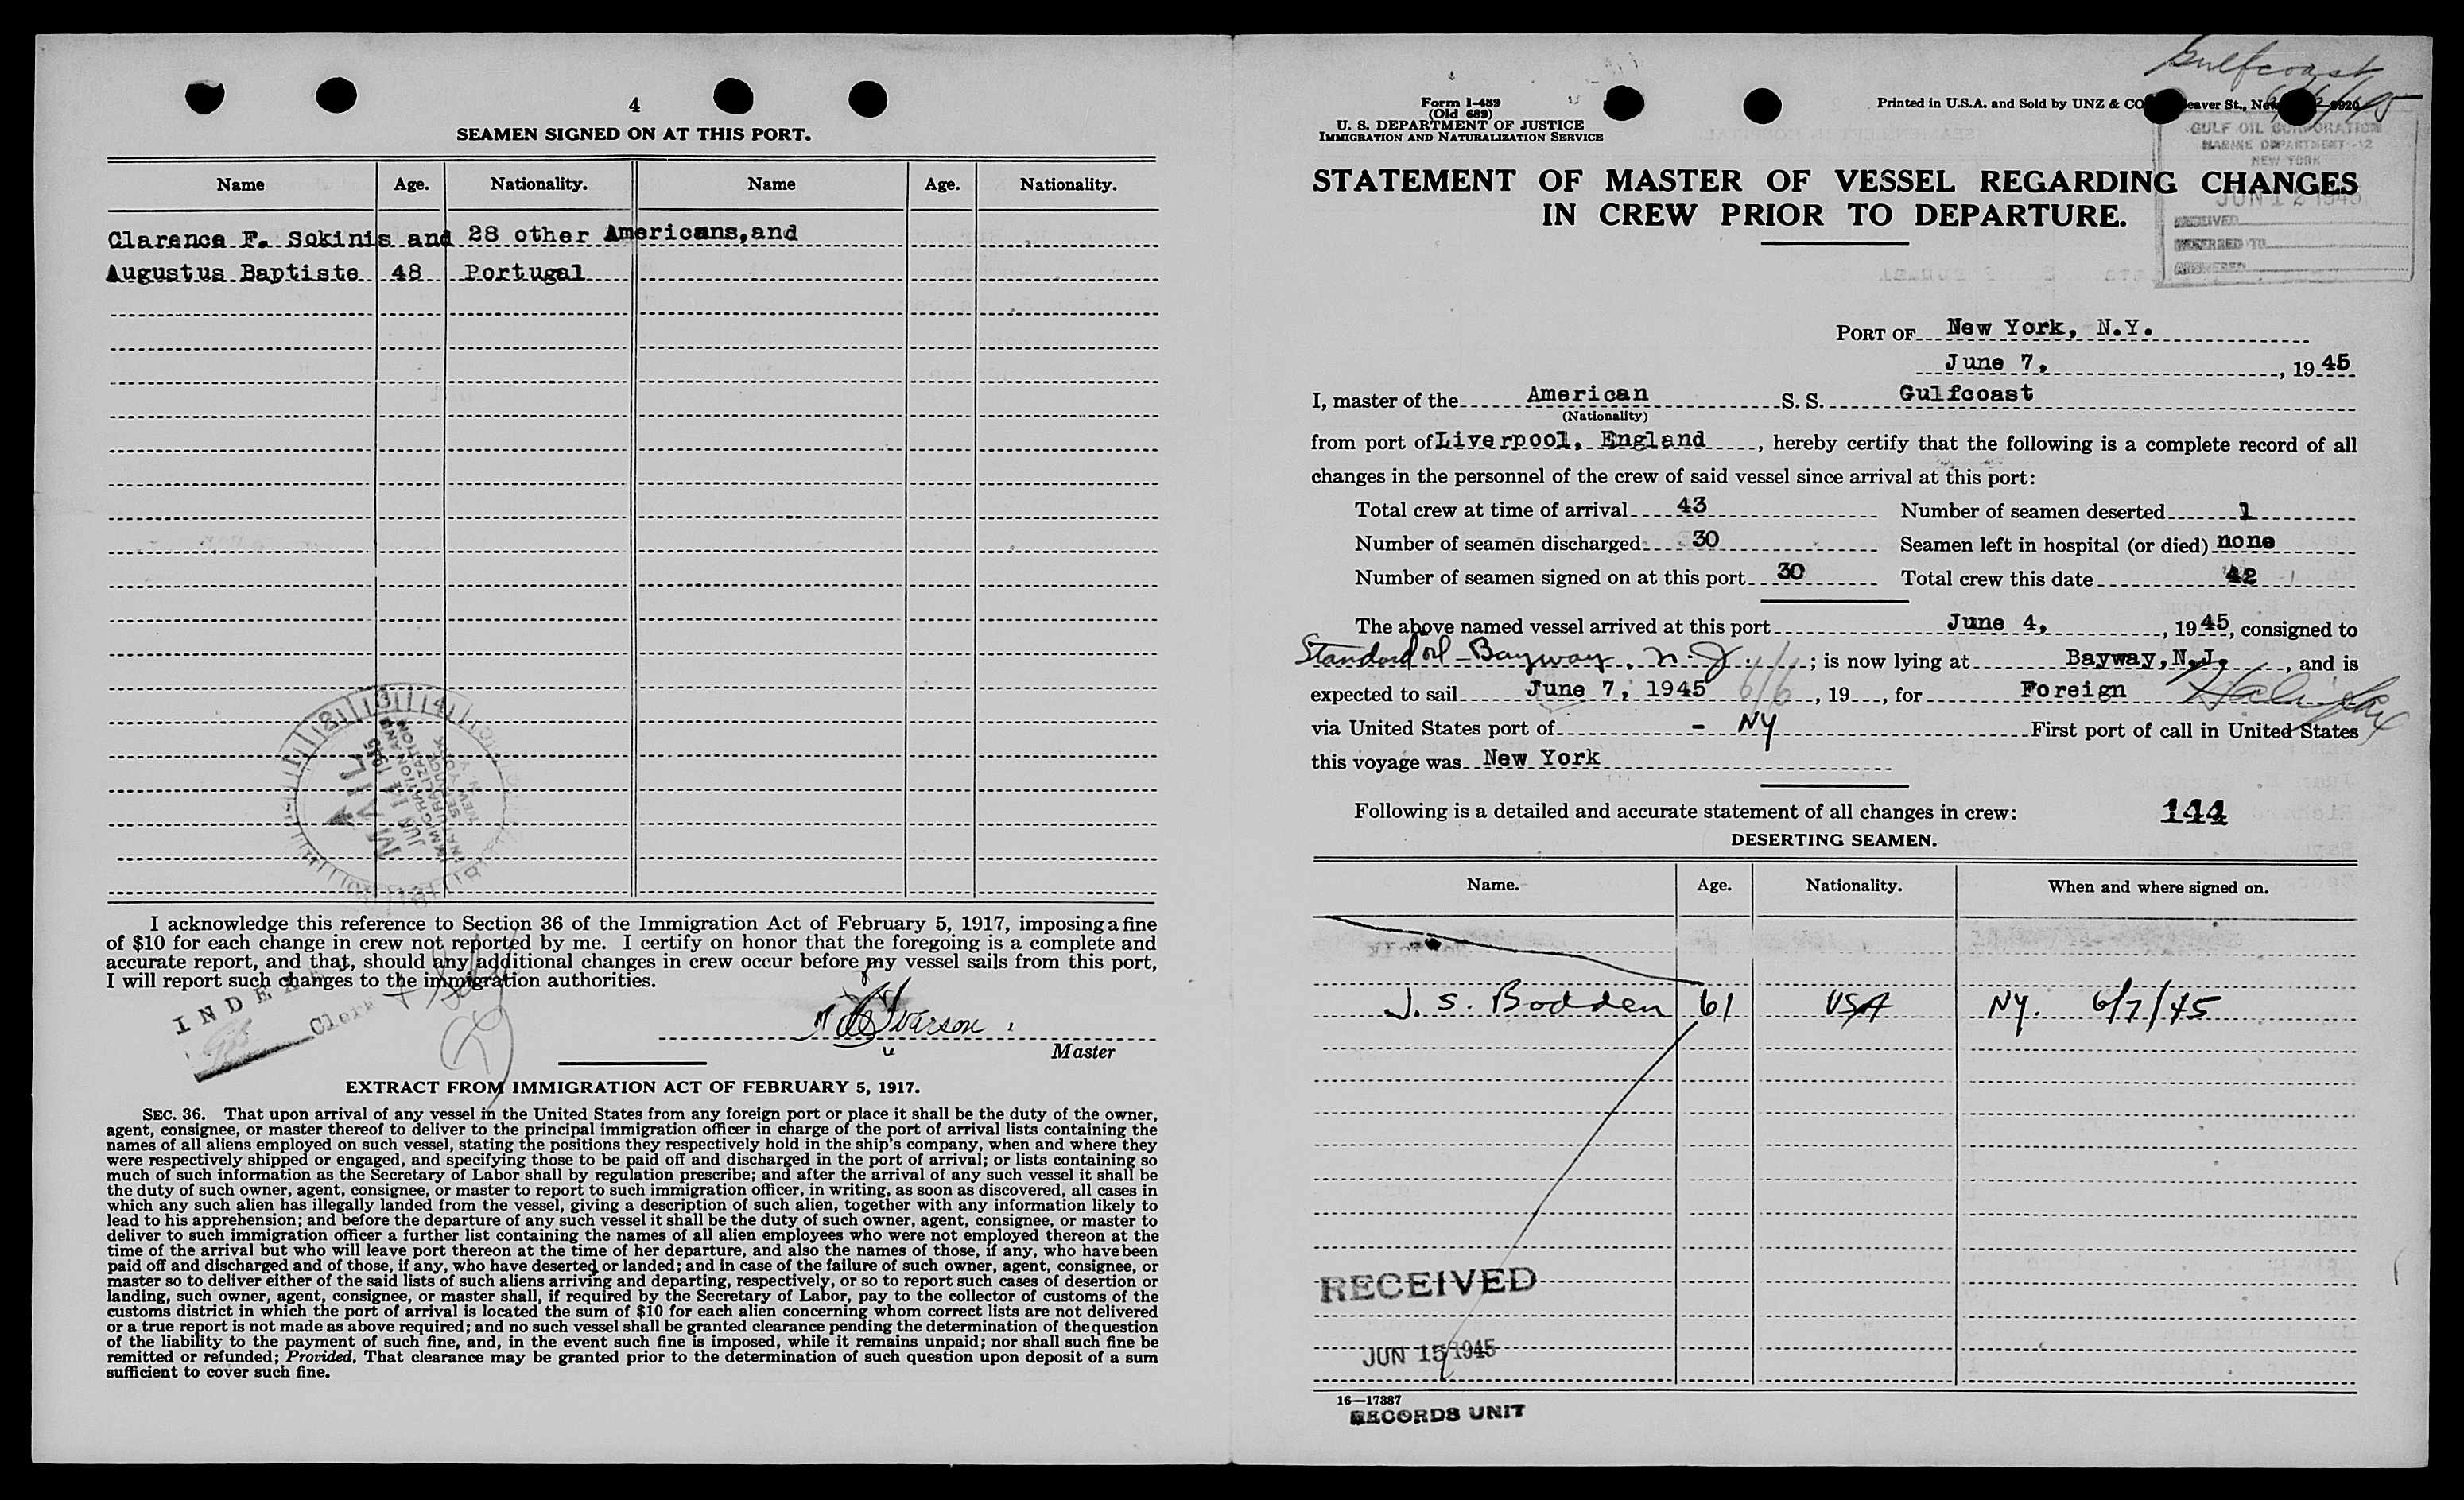 4
SEAMEN SIGNED ON AT THIS PORT.
Name Age. Nationality. Name Age. Nationality.
Clarence F. Sokinis and 28 other Americans, and
Augustus Baptiste 48 Portugal
MAIL
JUN 11 1945
IMMIGRATION AND
NATURALIZATION
SERVICE
NEW YORK
I acknowledge this reference to Section 36 of the Immigration Act of February 5, 1917, imposing a fine
of $10 for each change in crew not reported by me. I certify on honor that the foregoing is a complete and
accurate report, and that, should any additional changes in crew occur before my vessel sails from this port,
I will report such changes to the immigration authorities.
Clerk
Master
EXTRACT FROM IMMIGRATION ACT OF FEBRUARY 5, 1917.
SEC. 36. That upon arrival of any vessel in the United States from any foreign port or place it shall be the duty of the owner,
agent, consignee, or master thereof to deliver to the principal immigration officer in charge of the port of arrival lists containing the
names of all aliens employed on such vessel, stating the positions they respectively hold in the ship's company, when and where they
were respectively shipped or engaged, and specifying those to be paid off and discharged in the port of arrival; or lists containing so
much of such information as the Secretary of Labor shall by regulation prescribe; and after the arrival of any such vessel it shall be
the duty of such owner, agent, consignee, or master to report to such immigration officer, in writing, as soon as discovered, all cases in
which any such alien has illegally landed from the vessel, giving a description of such alien, together with any information likely to
lead to his apprehension; and before the departure of any such vessel it shall be the duty of such owner, agent, consignee, or master to
deliver to such immigration officer a further list containing the names of all alien employees who were not employed thereon at the
time of the arrival but who will leave port thereon at the time of her departure, and also the names of those, if any, who have been
paid off and discharged and of those, if any, who have deserted or landed; and in case of the failure of such owner, agent, consignee, or
master so to deliver either of the said lists of such aliens arriving and departing, respectively, or so to report such cases of desertion or
landing, such owner, agent, consignee, or master shall, if required by the Secretary of Labor, pay to the collector of customs of the
customs district in which the port of arrival is located the sum of $10 for each alien concerning whom correct lists are not delivered
or a true report is not made as above required; and no such vessel shall be granted clearance pending the determination of the question
of the liability to the payment of such fine, and, in the event such fine is imposed, while it remains unpaid; nor shall such fine be
remitted or refunded; Provided, That clearance may be granted prior to the determination of such question upon deposit of a sum
sufficient to cover such fine.
Gulfcoast
Form I-489
(Old 689)
U. S. DEPARTMENT OF JUSTICE
IMMIGRATION AND NATURALIZATION SERVICE
Printed in U.S.A. and Sold by UNZ & CO
GULF OIL CORPORATION
MARINE DEPARTMENT
NEW YORK
JUN 12 1945
RECEIVED
REFERRED TO
ANSWERED
STATEMENT OF MASTER OF VESSEL REGARDING CHANGES
IN CREW PRIOR TO DEPARTURE.
PORT OF New York, N.Y.
June 7, , 1945
I, master of the American S. S. Gulfcoast
(Nationality)
from port of Liverpool, England , hereby certify that the following is a complete record of all
changes in the personnel of the crew of said vessel since arrival at this port:
Total crew at time of arrival 43 Number of seamen deserted 1
Number of seamen discharged 30 Seamen left in hospital (or died) none
Number of seamen signed on at this port 30 Total crew this date 42
The above named vessel arrived at this port June 4, , 1945, consigned to
Standard Oil - Bayway, N.J. ; is now lying at Bayway, N.J. , and is
expected to sail June 7, 1945 6/6 , 19 , for Foreign Halifax
via United States port of - NY First port of call in United States
this voyage was New York
Following is a detailed and accurate statement of all changes in crew: 144
DESERTING SEAMEN.
Name. Age. Nationality. When and where signed on.
J. S. Bodden 61 USA NY. 6/7/45
RECEIVED
JUN 15 1945
16—17387
RECORDS UNIT